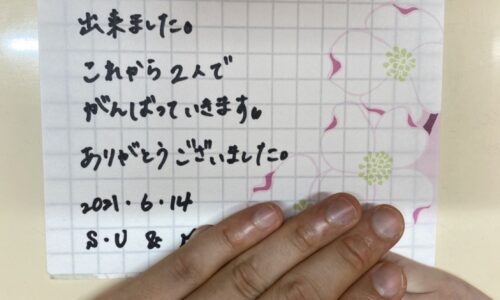 出来ました。
これから2人で
がんばっていきます。
ありがとうございました。
2021.6.14
S.U &